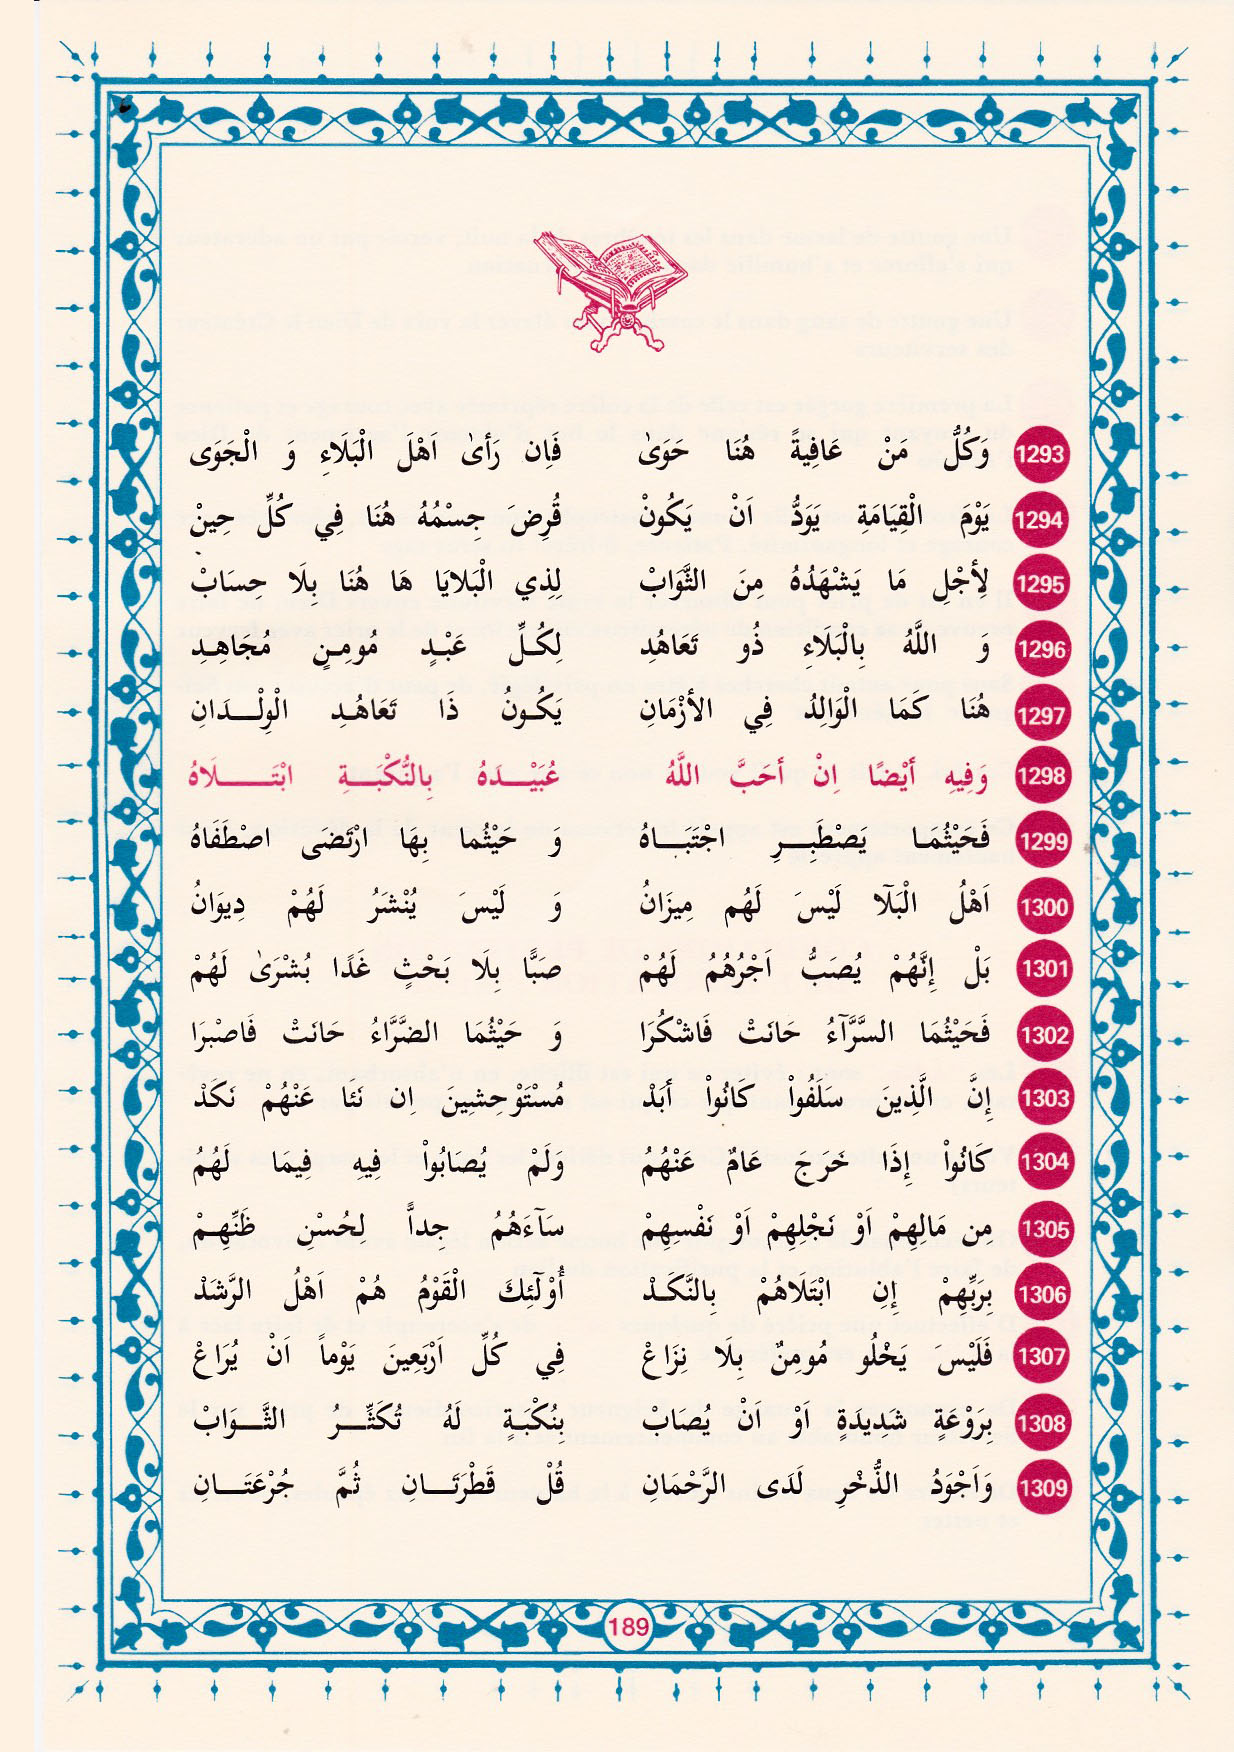 1293 وَكُلُّ مَنْ عَافِيَةً هُنَا حَوَىٰ فَإِن رَأَىٰ اَهْلَ الْبَلَاءِ وَ الْجَوَى
1294 يَوْمَ الْقِيَامَةِ يَوَدُّ اَنْ يَكُونْ قُرِضَ جِسْمُهُ هُنَا فِي كُلِّ حِينْ
1295 لِأَجْلِ مَا يَشْهَدُهُ مِنَ الثَّوَابْ لِذِي الْبَلَايَا هَا هُنَا بِلَا حِسَابْ
1296 وَ اللَّهُ بِالْبَلَاءِ ذُو تَعَاهُدِ لِكُلِّ عَبْدٍ مُومِنٍ مُجَاهِدِ
1297 هُنَا كَمَا الْوَالِدُ فِي الأَزْمَانِ يَكُونُ ذَا تَعَاهُدِ الْوِلْدَانِ
1298 وَفِيهِ أَيْضًا اِنْ أَحَبَّ اللَّهُ عُبَيْدَهُ بِالنُّكْبَةِ ابْتَلَاهُ
1299 فَحَيْثُمَا يَصْطَبِرِ اجْتَبَاهُ وَ حَيْثُما بِهَا ارْتَضَى اصْطَفَاهُ
1300 اَهْلُ الْبَلَآ لَيْسَ لَهُم مِيزَانُ وَ لَيْسَ يُنْشَرُ لَهُمْ دِيوَانُ
1301 بَلْ إِنَّهُمْ يُصَبُّ اَجْرُهُمُ لَهُمْ صَبًّا بِلَا بَحْثٍ غَدًا بُشْرَىٰ لَهُمْ
1302 فَحَيْثُمَا السَّرَّآءُ حَانَتْ فَاشْكُرَا وَ حَيْثُمَا الضَّرَّاءُ حَانَتْ فَاصْبِرَا
1303 إِنَّ الَّذِينَ سَلَفُواْ كَانُواْ أَبَدْ مُسْتَوْحِشِينَ اِن نَئَا عَنْهُمْ نَكَدْ
1304 كَانُواْ إِذَا خَرَجَ عَامٌ عَنْهُمُ وَلَمْ يُصَابُواْ فِيهِ فِيمَا لَهُمُ
1305 مِن مَالِهِمْ اَوْ نَجْلِهِمْ اَوْ نَفْسِهِمْ سَآءَهُمُ جِداً لِحُسْنِ ظَنِّهِمْ
1306 بِرَبِّهِمْ إِنِ ابْتَلَاهُمْ بِالنَّكَدْ أُوْلَٓئِكَ الْقَوْمُ هُمْ اَهْلُ الرَّشَدْ
1307 فَلَيْسَ يَخْلُو مُومِنٌ بِلَا نِزَاعْ فِي كُلِّ اَرْبَعِينَ يَوْماً اَنْ يُرَاعْ
1308 بِرَوْعَةٍ شَدِيدَةٍ اَوْ اَنْ يُصَابْ بِنُكْبَةٍ لَهُ تُكَثِّرُ الثَّوَابْ
1309 وَاَجْوَدُ الذُّخْرِ لَدَى الرَّحْمَانِ قُلْ قَطْرَتَانِ ثُمَّ جُرْعَتَانِ
189